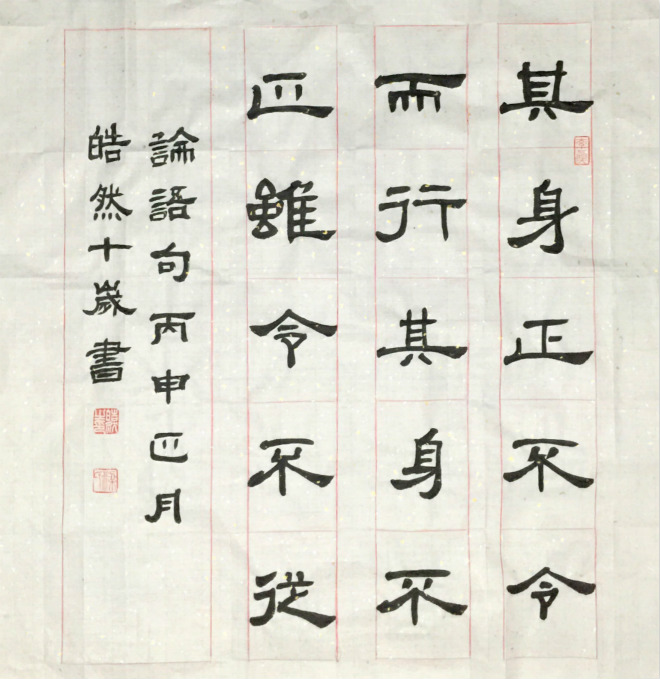 其身正不令
而行其身不
正雖令不從
論語句丙申正月
皓然十歲書